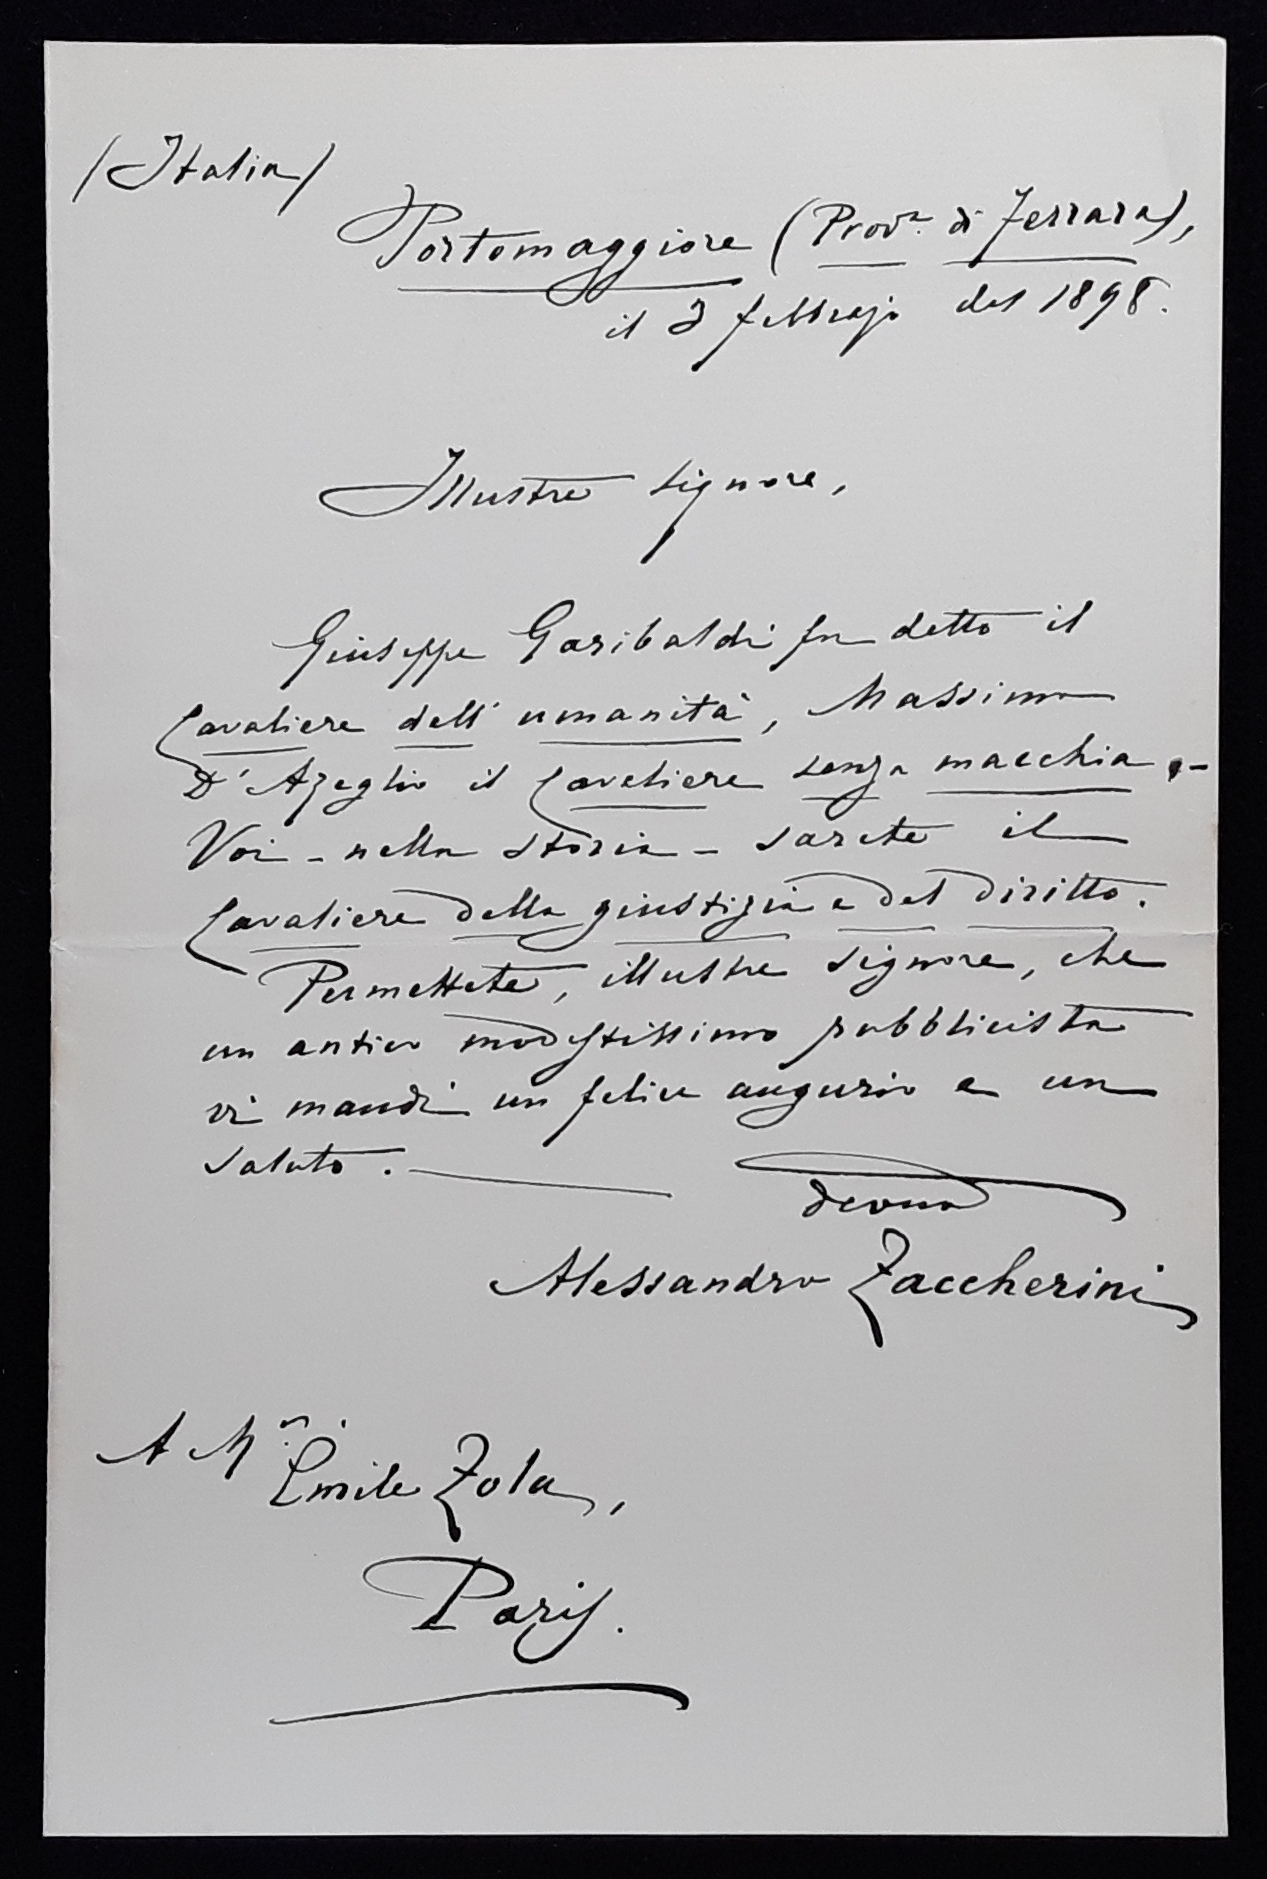 (Italia)
Portomaggiore (Prov.a di Ferrara),
il 3 febbrajo del 1898.
Illustre signore,
Giuseppe Garibaldi fu detto il
Cavaliere dell'umanità, Massimo
D'Azeglio il Cavaliere senza macchia.-
Voi - nella storia - sarete il
Cavaliere della giustizia e del diritto.
Permettete, illustre signore, che
un antico modestissimo pubblicista
vi mandi un felice augurio e un
saluto.
Alessandro Zaccherini
A M.r Emile Zola,
Paris.